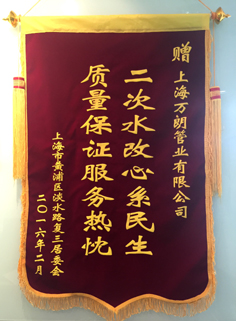 赠 上海万朗管业有限公司
二次水改心系民生
质量保证服务热忱
上海市黄浦区淡水路复三居委会
二〇一六年二月